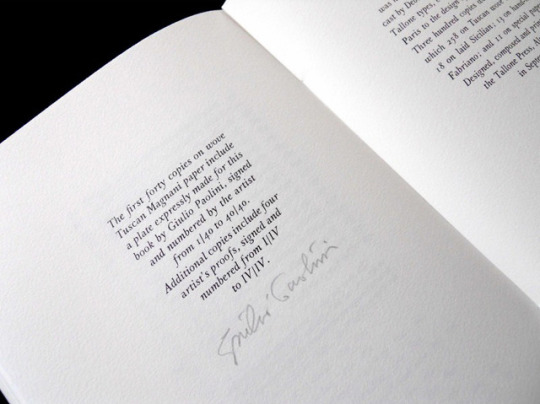 The first forty copies on wove
Tuscan Magnani paper include
a plate expressly made for this
book by Giulio Paolini, signed
and numbered by the artist
from 1/40 to 40/40.
Additional copies include four
artist's proofs, signed and
numbered from I/IV
to IV/IV.
Giulio Paolini
was
cast by
Tallone types,
Paris to the design
Three hundred copies
which 258 on Tuscan wove
18 on laid Sicilian; 13 on
Fabriano; and 11 on special
Designed, composed and
the Tallone Press,
in